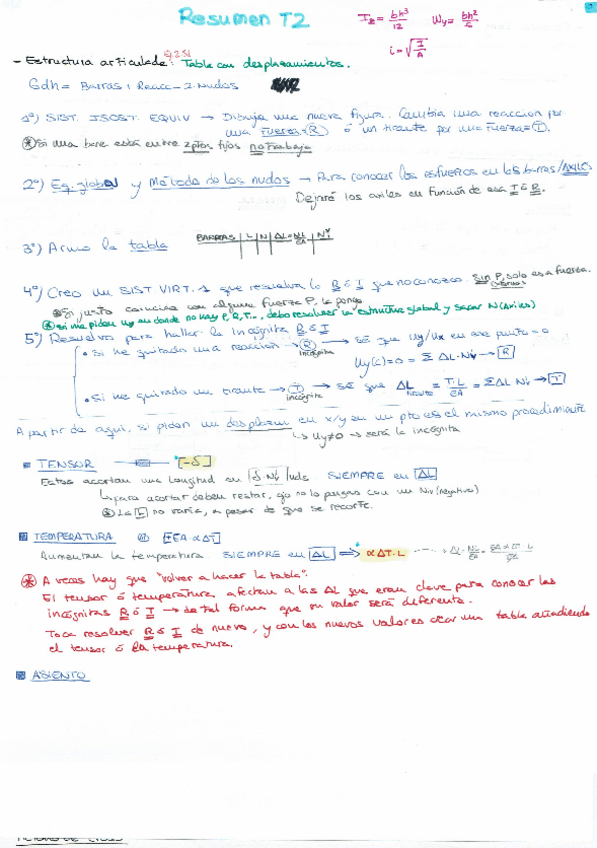 Resumen T2
Iz = bh³/12 Wy = bh²/6
i = √I/A
- Estructura articulada: Tabla con desplazamientos.
Gdh = Barras + Reacc - 2·Nudos
1º) SIST. ISOST. EQUIV → Dibuja una nueva figura. Cambia una reacción por
una Fuerza=(R) ó un tirante por una Fuerza=(T).
* Si una barra está entre 2ptos fijos no trabaja
2º) Eq. global y Método de los nudos → Para conocer los esfuerzos en las barras/AXILES
Dejaré los axiles en función de esa T ó R.
3º) Armo la tabla
BARRAS | L | N | ΔL=NL/EA | N
4º) Creo un SIST VIRT. 1 que resuelva lo R ó T que no conozco. Sin P, solo esa fuerza.
* Si justo coincide con alguna fuerza P, la pongo
* si me piden Uy en donde no hay P, R, T..., debo resolver la estructura global y sacar N (Axiles)
5º) Resuelvo para hallar la incógnita R ó T
• Si he quitado una reacción → (R) → sé que Uy/Ux en ese punto = 0
incógnita
Uy(c)=0 = Σ ΔL·Ni → R
• Si he quitado un tirante → (T) → sé que ΔL = T·L/EA = Σ ΔL Ni → T
incógnita
A partir de aquí, si piden un desplazam en x/y en un pto es el mismo procedimiento
↳ Uy≠0 → será la incógnita
TENSOR [-δ]
Estos acortan una longitud en uds SIEMPRE en ΔL
↳ para acortar deben restar, ojo no lo pongas con un Niv (negativo)
* La L no varía, a pesar de que se recorte.
TEMPERATURA [+EA·αΔT]
Aumentan la temperatura SIEMPRE en ΔL ⇒ αΔT·L
* A veces hay que "volver a hacer la tabla":
El tensor ó temperatura, afectan a las ΔL que eran clave para conocer las
incógnitas R ó T → de tal forma que su valor será diferente.
Toca resolver R ó T de nuevo, y con los nuevos valores crear una tabla añadiendo
el tensor ó la temperatura.
ASIENTO